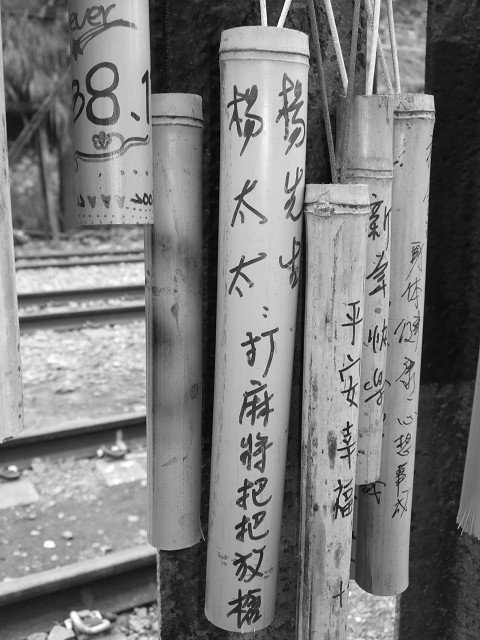 ever
38.1
楊先生
楊太太：
打麻將把把放槍
平安幸福
新幸快樂
身体健康
心想事成